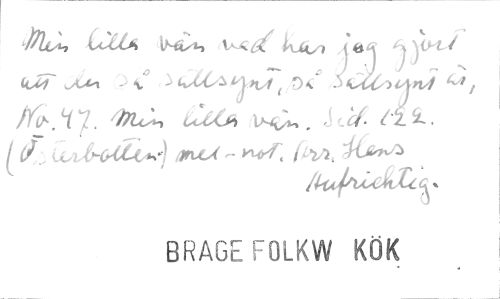 Min lilla vän vad har jag gjort
att du så sällsynt, så sällsynt är,
No. 47. Min lilla vän. Sid. 122.
(Österbotten) mel-not. Arr. Hans
Aufrichtig.
BRAGE FOLKW KÖK